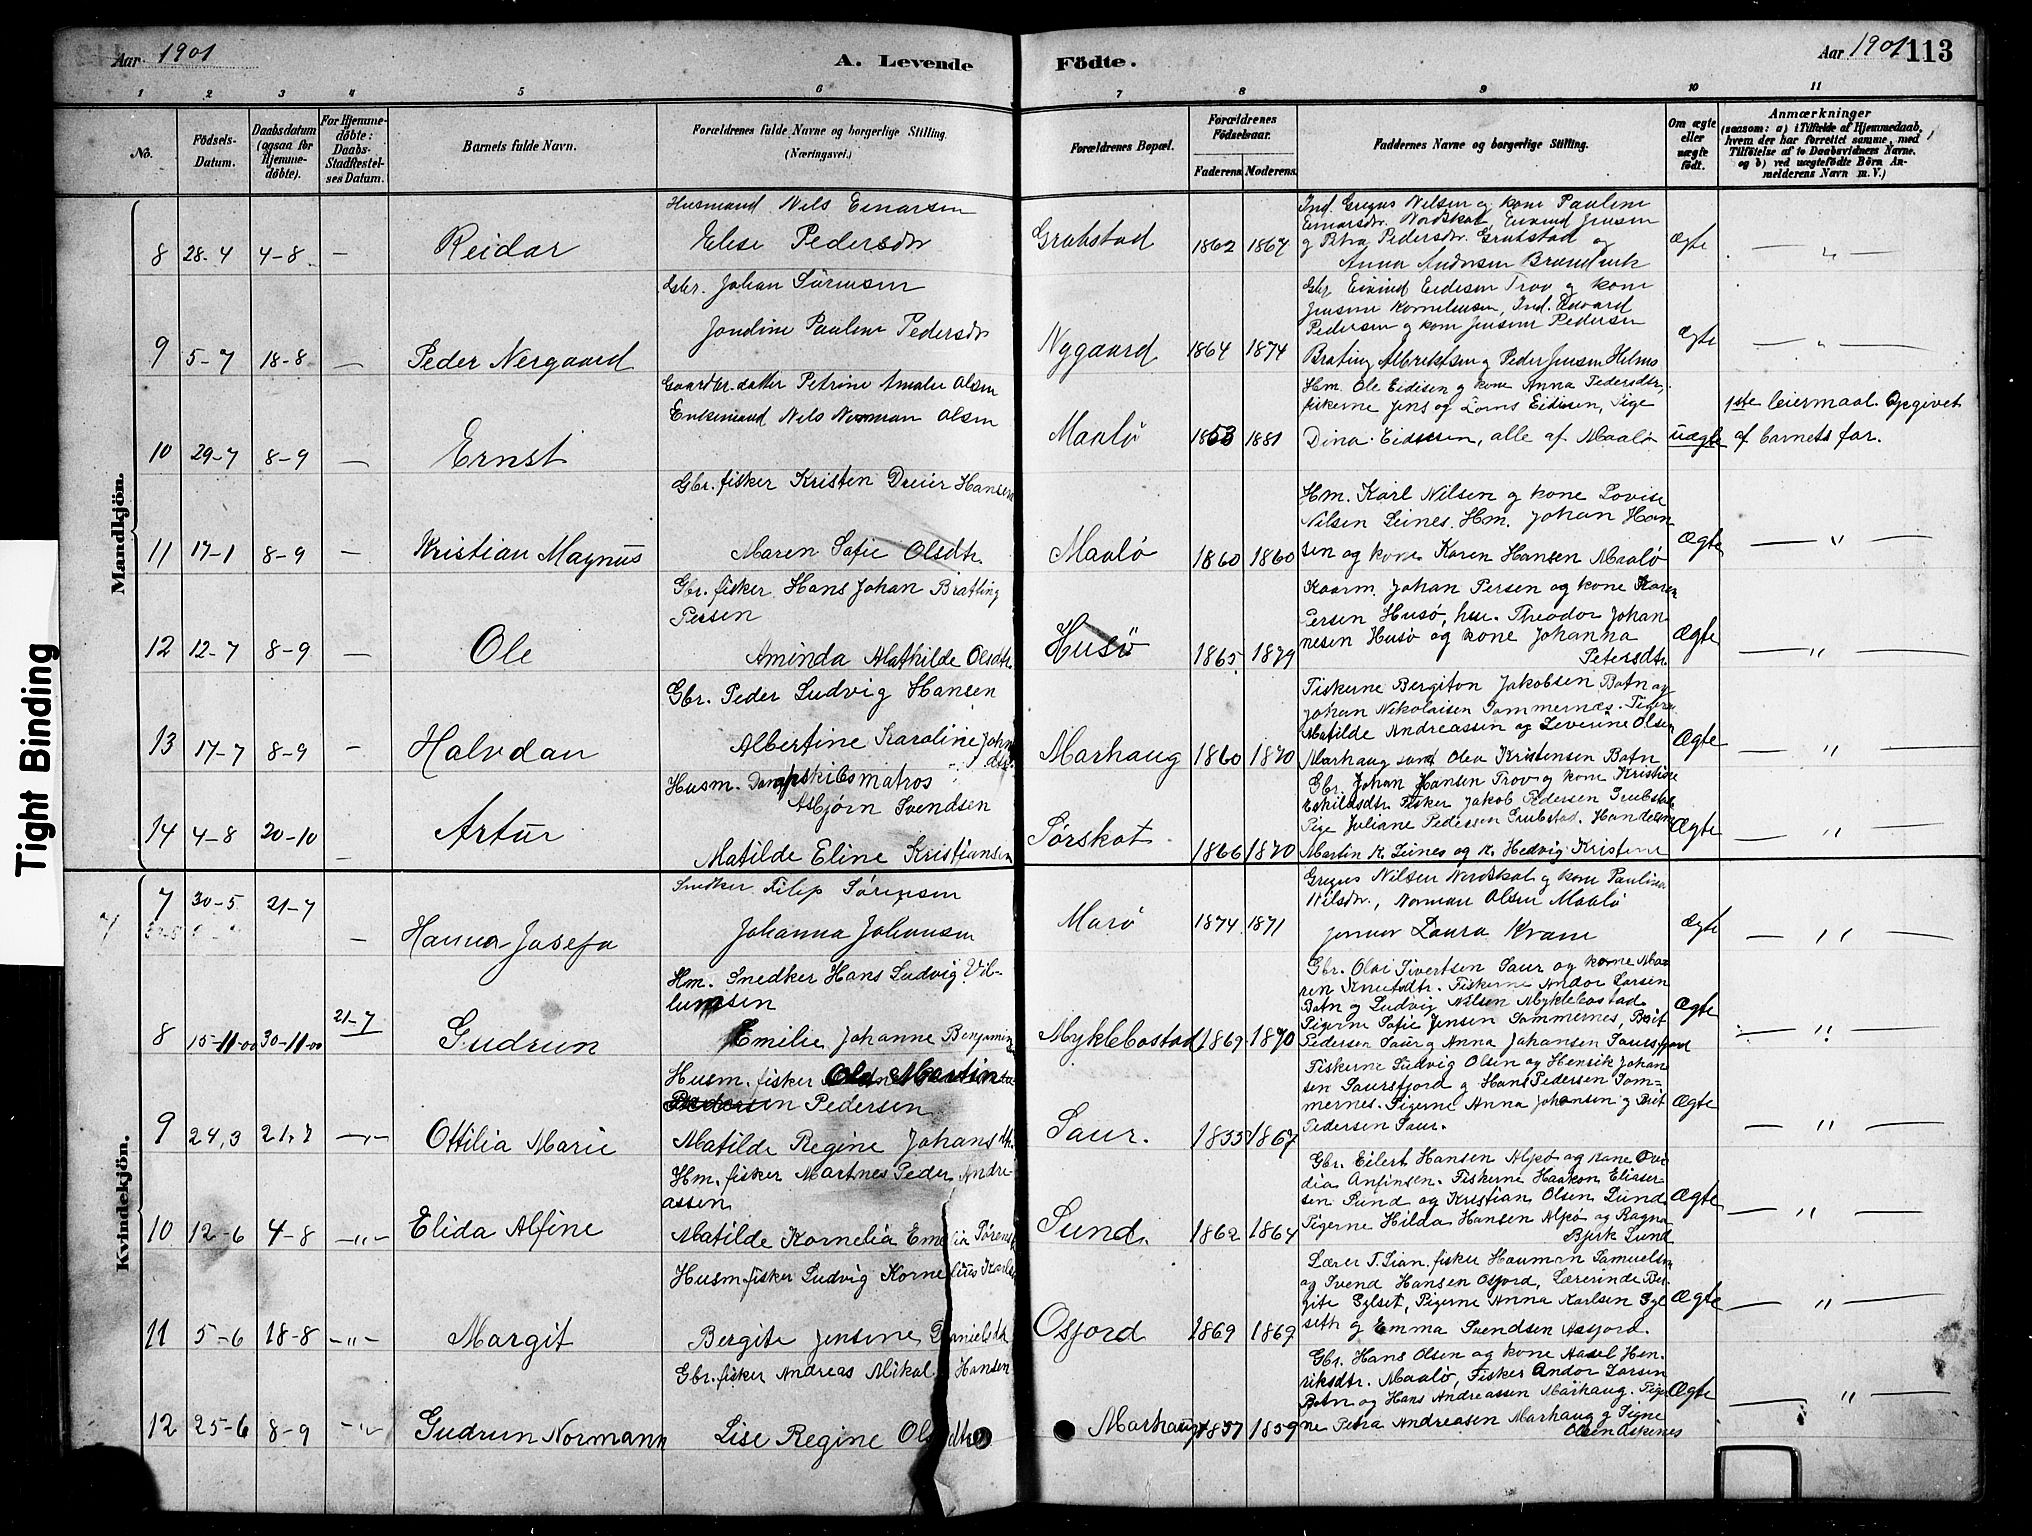 Aar 1901
A. Levende
Födte.
Aar 1901
113
1 2 3 4 5 6 7 8 9 10 11
No.
Födsels-
Datum.
Daabsdatum
(ogsaa for
Hjemme-
döbte).
For Hjemme-
döbte:
Daabs-
Stadfæstel-
ses Datum.
Barnets fulde Navn.
Forældrenes fulde Navne og borgerlige Stilling.
(Næringsvei.)
Forældrenes Bopæl.
Forældrenes
Födselsaar.
Faderens Moderens
Faddernes Navne og borgerlige Stilling.
Om ægte
eller
uægte
født.
Anmærkninger
(saasom: a) i Tilfælde af Hjemmedaab,
hvem der har forrettet samme, med
Tilføielse af to Daabsvidners Navne,
og b) ved uægtefödte Börn An-
melderens Navn m. V.)
Mandkjön.
8 28-4 4-8 — Reidar
Husmand Nils Einarsen
Elise Pedersdtr
Grubstad 1862 1864
Ind. Gregus Nilsen og kone Pauline
Einarsdtr. Nordskot Eivind Jensen
g Petra Pedersdtr. Grubstad og
Anna Andersen Brandvik
Ægte — " —
9 5-7 18-8 — Peder Nergaard
Gbr. Johan Sörensen
Jondine Pauline Pedersdtr
Nygaard 1864 1874
Gbr Eivind Eidesen Trov og kone
Jensine Kornelusen, Ind. Edvard
Pedersen g kone Jensine Pedersen
Brating Albrektsen g Peder Jensen Helnes
Ægte — " —
10 29-7 8-9 — Ernst
Gaardbr.datter Petrine Amalie Olsen
Enkemand Nils Norman Olsen
Maalö 1853 1881
Hm. Ole Eidisen g kone Anna Pedersdtr,
fiskerne Jens og Eidisen, Pige
Dina Eidissen, alle af Maalö
uægte
1ste leiermaal. Opgivet
af barnets far.
11 17-1 8-9 — Kristian Magnus
Gbr. fisker Kristen Dreier Hansen
Maren Sofie Olsdtr.
Maalö 1860 1860
Hm. Karl Nilsen g kone Lovise
Nilsen Leines. Hm. Johan Han
sen og kone Karen Hansen Maalö
Ægte — " —
12 12-7 8-9 — Ole
Gbr. fisker Hans Johan Bratting
Persen
Aminda Mathilde Olsdtr.
Husö 1865 1879
Kaarm. Johan Persen og kone Karen
Persen Husö, hm. Theodor Johan
nesen Husö og kone Johanna
Petersdtr.
Ægte — " —
13 17-7 8-9 — Halvdan
Gbr. Peder Ludvig Hansen
Albertine Karoline Johns
dtr.
Marhaug 1860 1870
Fiskerne Bergiton Jakobsen Botn og
Johan Nikolaisen Sommernæs. Pigerne
Matilde Andreassen og Zeverine Olsen
Marhaug samt Olea Kristensen Botn
Ægte — " —
14 4-8 20-10 — Artur
Husm. Dampskibsmatros
Asbjørn Svendsen
Matilde Eline Kristiansen
Sørskot 1866 1870
Gbr. Johan Hansen Trov g kone Kristine
Eskildsdtr. Fisker Jakob Pedersen Grubstad
Pige Juliane Pedersen Grubstad. Handelsm
Martin K. Leines og k. Hedvig Kristine
Ægte — " —
Kvindekjön.
7 30-5 21-7 — Hanna Josefa
Snedker Filip Sørensen
Johanna Johansen
Marö 1874 1871
Gregus Nilsen Nordskot g kone Pauline
Nilsdtr., Norman Olsen Maalö
Laura Kvam
Ægte — " —
8 15-11-00 30-11-00 21-7 Gudrun
Hm. Snedker Hans Ludvig Vil-
lumsen
Emilie Johanne Benjamins
Myklebostad 1869 1870
Gbr. Olai Sivertsen Saur og kone Ma-
ren Knutsdtr. Fiskerne Andor Larsen
Botn g Ludvig Nilsen Myklebostad
Pigerne Sofie Jensen Sommernes, Brit
Pedersen Saur g Anna Johansen Saursfjord
Ægte — " —
9 24,3 21,7 —"— Ottilia Marie
Husm. fisker Ole Martin
Pedersen Pedersen
Matilde Regine Johansdtr.
Saur. 1855 1867
Fiskerne Ludvig Olsen og Henrik Johan
sen Saursfjord g Hans Pedersen Som-
mernes. Pigerne Anna Johansen g Brit
Pedersen Saur.
Ægte — " —
10 12-6 4-8 —"— Elida Alfine
Hm. fisker Martnes Peder Andre-
assen
Matilde Kornelia Emelia Sørens
Sund. 1862 1864
Gbr. Eilert Hansen Alpö og kone Ove
dia Anfinsen. Fiskerne Haakon Elieser-
sen Sund og Kristian Olsen Sund
Pigerne Hilda Hansen Alpö og Ragna
Bjerk Sund
Ægte — " —
11 5-6 18-8 —"— Margit
Husm. fisker Ludvig Kornelius Karls
Bergite Jensine Danielsdtr
Osfjord 1869 1869
Lærer T. Lian, fisker Hauman Samuelsen
og Svend Hansen Osfjord, Lærerinde Ber-
gite Gylset, Pigerne Anna Karlsen Gyl
seth g Emma Svendsen Osfjord.
Ægte — " —
12 25-6 8-9 —"— Gudrun Normann
Gbr. fisker Andreas Mikal Hansen
Lise Regine Olsdtr
Marhaug 1857 1859
Gbr. Hans Olsen og kone Aasel Hen-
riksdtr. Maalö, Fisker Andor Larsen
Botn og Hans Andreassen Marhaug. Piger
ne Petra Andreasen Marhaug g Signe
Olsen Askenes
Ægte — " —
Tight Binding